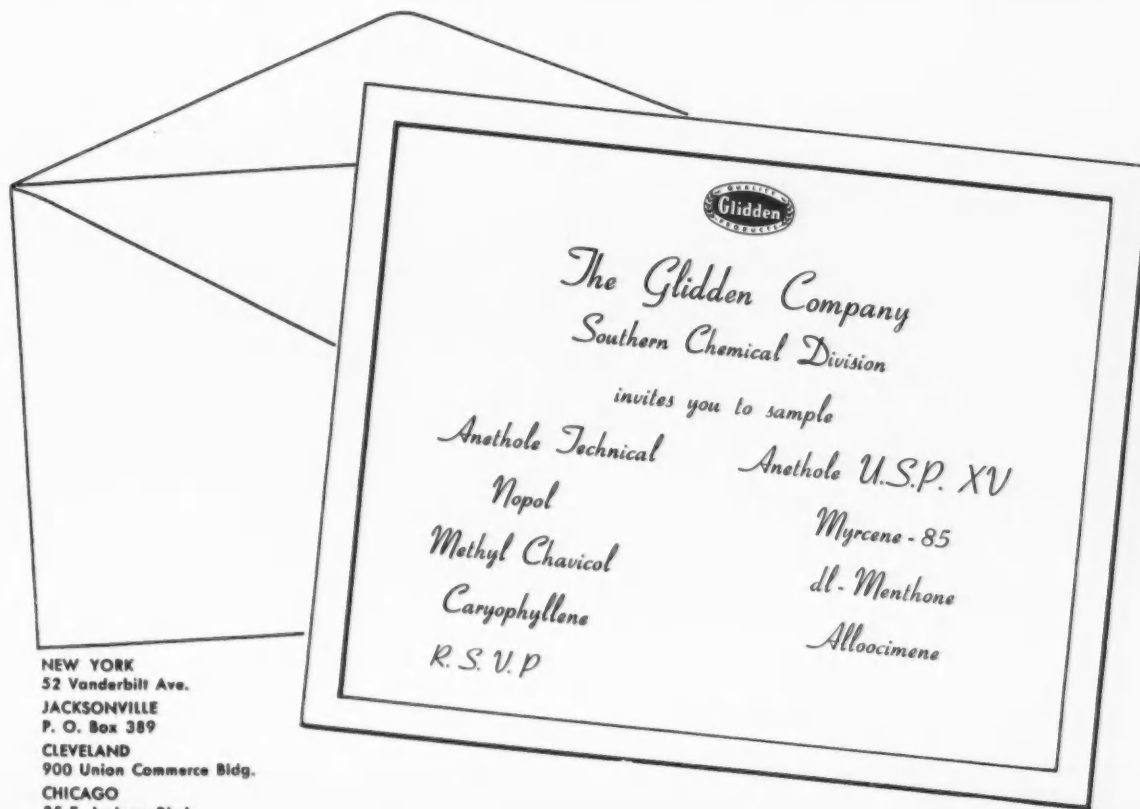 QUALITY
Glidden
PRODUCTS
The Glidden Company
Southern Chemical Division
invites you to sample
Anethole Technical
Nopol
Methyl Chavicol
Caryophyllene
R. S. V. P
Anethole U.S.P. XV
Myrcene - 85
dl - Menthone
Alloocimene
NEW YORK
52 Vanderbilt Ave.
JACKSONVILLE
P. O. Box 389
CLEVELAND
900 Union Commerce Bldg.
CHICAGO